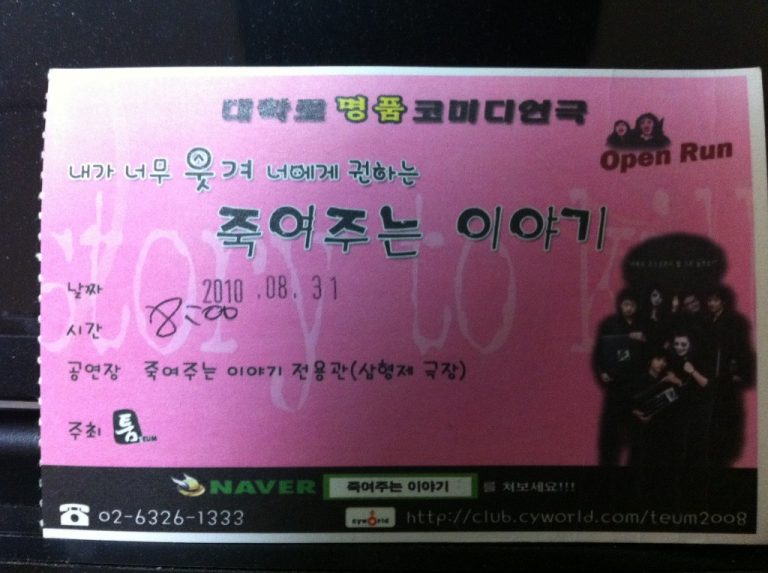 대학로 명품 코미디연극
Open Run
내가 너무 웃겨 너에게 권하는
죽여주는 이야기
story to kill
날짜 2010.08.31
시간 8:00
공연장 죽여주는 이야기 전용관(삼형제 극장)
주최 틈 TEUM
NAVER 죽여주는 이야기 를 쳐보세요!!!
02-6326-1333 cyworld http://club.cyworld.com/teum2008